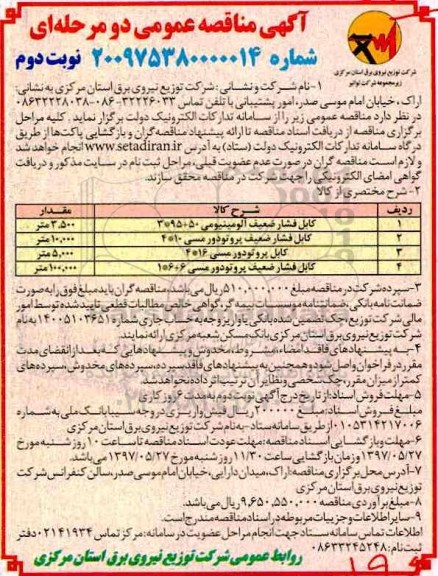 آگهی مناقصه عمومی دو مرحله‌ای
شماره ۲۰۰۹۷۵۳۸۰۰۰۰۰۱۴ نوبت دوم
شرکت توزیع نیروی برق استان مرکزی
۱-نام شرکت و نشانی: شرکت توزیع نیروی برق استان مرکزی به نشانی:
اراک، خیابان امام موسی صدر، امور پشتیبانی با تلفن تماس ۳۲۲۲۶۰۳۳-۰۸۶ ۰۸۶۳۲۲۲۸۰۳۸
در نظر دارد مناقصه عمومی زیر را از سامانه تدارکات الکترونیک دولت برگزار نماید. کلیه مراحل
برگزاری مناقصه از دریافت اسناد مناقصه تا ارائه پیشنهاد مناقصه گران و بازگشایی پاکت‌ها از طریق
درگاه سامانه تدارکات الکترونیک دولت (ستاد) به آدرس www.setadiran.ir انجام خواهد شد
و لازم است مناقصه گران در صورت عدم عضویت قبلی، مراحل ثبت نام در سایت مذکور و دریافت
گواهی امضای الکترونیکی را جهت شرکت در مناقصه محقق سازند.
۲- شرح مختصری از کالا:
ردیف شرح کالا مقدار
۱ کابل فشار ضعیف آلومینیومی ۵۰+۹۵*۳ ۳,۵۰۰ متر
۲ کابل فشار ضعیف پروتودور مسی ۱۰*۴ ۱۰,۰۰۰ متر
۳ کابل پروتودور مسی ۱۶*۴ ۵,۰۰۰ متر
۴ کابل فشار ضعیف پروتودور مسی ۶+۶*۱ ۱۰۰,۰۰۰ متر
۳-سپرده شرکت در مناقصه مبلغ ۵۱۰,۰۰۰,۰۰۰ ریال می باشد، مناقصه گران باید مبلغ فوق را به صورت
ضمانت نامه بانکی، ضمانتنامه موسسات بیمه گر، گواهی خالص مطالبات قطعی تایید شده توسط امور
مالی شرکت توزیع، چک تضمین شده بانکی یا واریز وجه به حساب جاری شماره ۱۴۰۰۵۱۰۳۶۵۱ به نام
شرکت توزیع نیروی برق استان مرکزی بانک مسکن شعبه مرکزی ارائه نمایند.
۴-به پیشنهادهای فاقد امضاء، مشروط، مخدوش و پیشنهادهایی که بعد از انقضای مدت
مقرر در فراخوان واصل شود و همچنین به پیشنهادهای فاقد سپرده، سپرده های مخدوش، سپرده های
کمتر از میزان مقرر، چک شخصی و نظایر آن ترتیب اثر داده نخواهد شد.
۵-مهلت فروش اسناد: از تاریخ درج آگهی نوبت دوم به مدت ۶ روز کاری
مبلغ فروش اسناد: مبلغ ۲۰۰۰۰۰ ریال فیش واریزی در وجه سیبا بانک ملی به شماره
۰۱۰۵۳۱۴۲۱۷۰۰۶ از طریق سامانه ستاد - به نام شرکت توزیع نیروی برق استان مرکزی
۶- مهلت و بازگشایی اسناد مناقصه: مهلت عودت اسناد مناقصه تا ساعت ۱۰ روز شنبه مورخ
۱۳۹۷/۰۵/۲۷ و زمان بازگشایی ساعت ۱۱/۳۰ روز شنبه مورخ ۱۳۹۷/۰۵/۲۷ می باشد.
۷-آدرس محل برگزاری مناقصه: اراک، میدان دارایی، خیابان امام موسی صدر، سالن کنفرانس شرکت
توزیع نیروی برق استان مرکزی
۸-مبلغ برآوردی مناقصه ۹,۶۵۰,۵۵۰,۰۰۰ ریال می باشد.
۹- سایر اطلاعات و جزییات مربوطه در اسناد مناقصه مندرج است.
اطلاعات تماس سامانه ستاد جهت انجام مراحل عضویت در سامانه: مرکز تماس ۰۲۱۴۱۹۳۴ دفتر
ثبت نام: ۰۸۶۳۳۲۴۵۲۴۸
روابط عمومی شرکت توزیع نیروی برق استان مرکزی